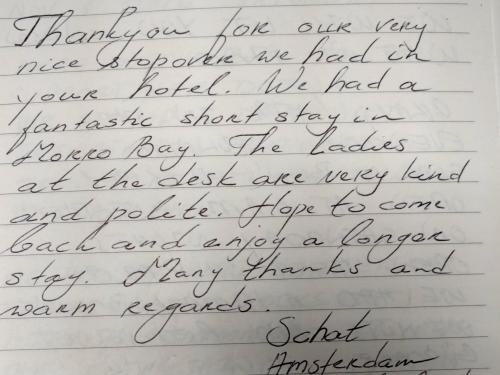 Thankyou for our very
nice stopover we had in
your hotel. We had a
fantastic short stay in
Morro Bay. The ladies
at the desk are very kind
and polite. Hope to come
back and enjoy a longer
stay. Many thanks and
warm regards.
Schat
Amsterdam